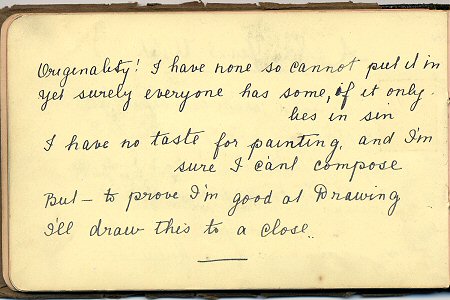 Originality! I have none so cannot put it in
Yet surely everyone has some, if it only
lies in sin
I have no taste for painting, and I'm
sure I can't compose
But – to prove I'm good at Drawing
I'll draw this to a close.